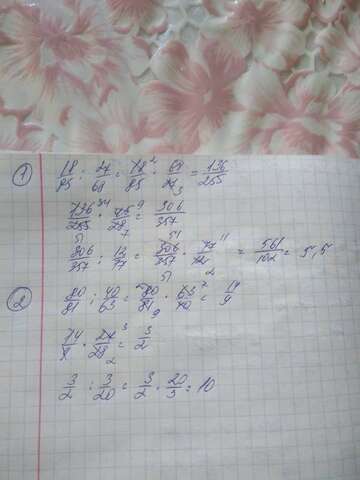 ① 18/85 : 27/68 = 18²/85 · 68/27₃ = 136/255
136³⁴/255₅₁ · 45⁹/28₇ = 306/357
306/357 : 12/77 = 306⁵¹/357₅₁ · 77¹¹/12₂ = 561/102 = 5,5
② 80/81 : 40/63 = 80/81₉ · 63⁷/40 = 14/9
14/9 · 27³/28₂ = 3/2
3/2 : 3/20 = 3/2 · 20/3 = 10